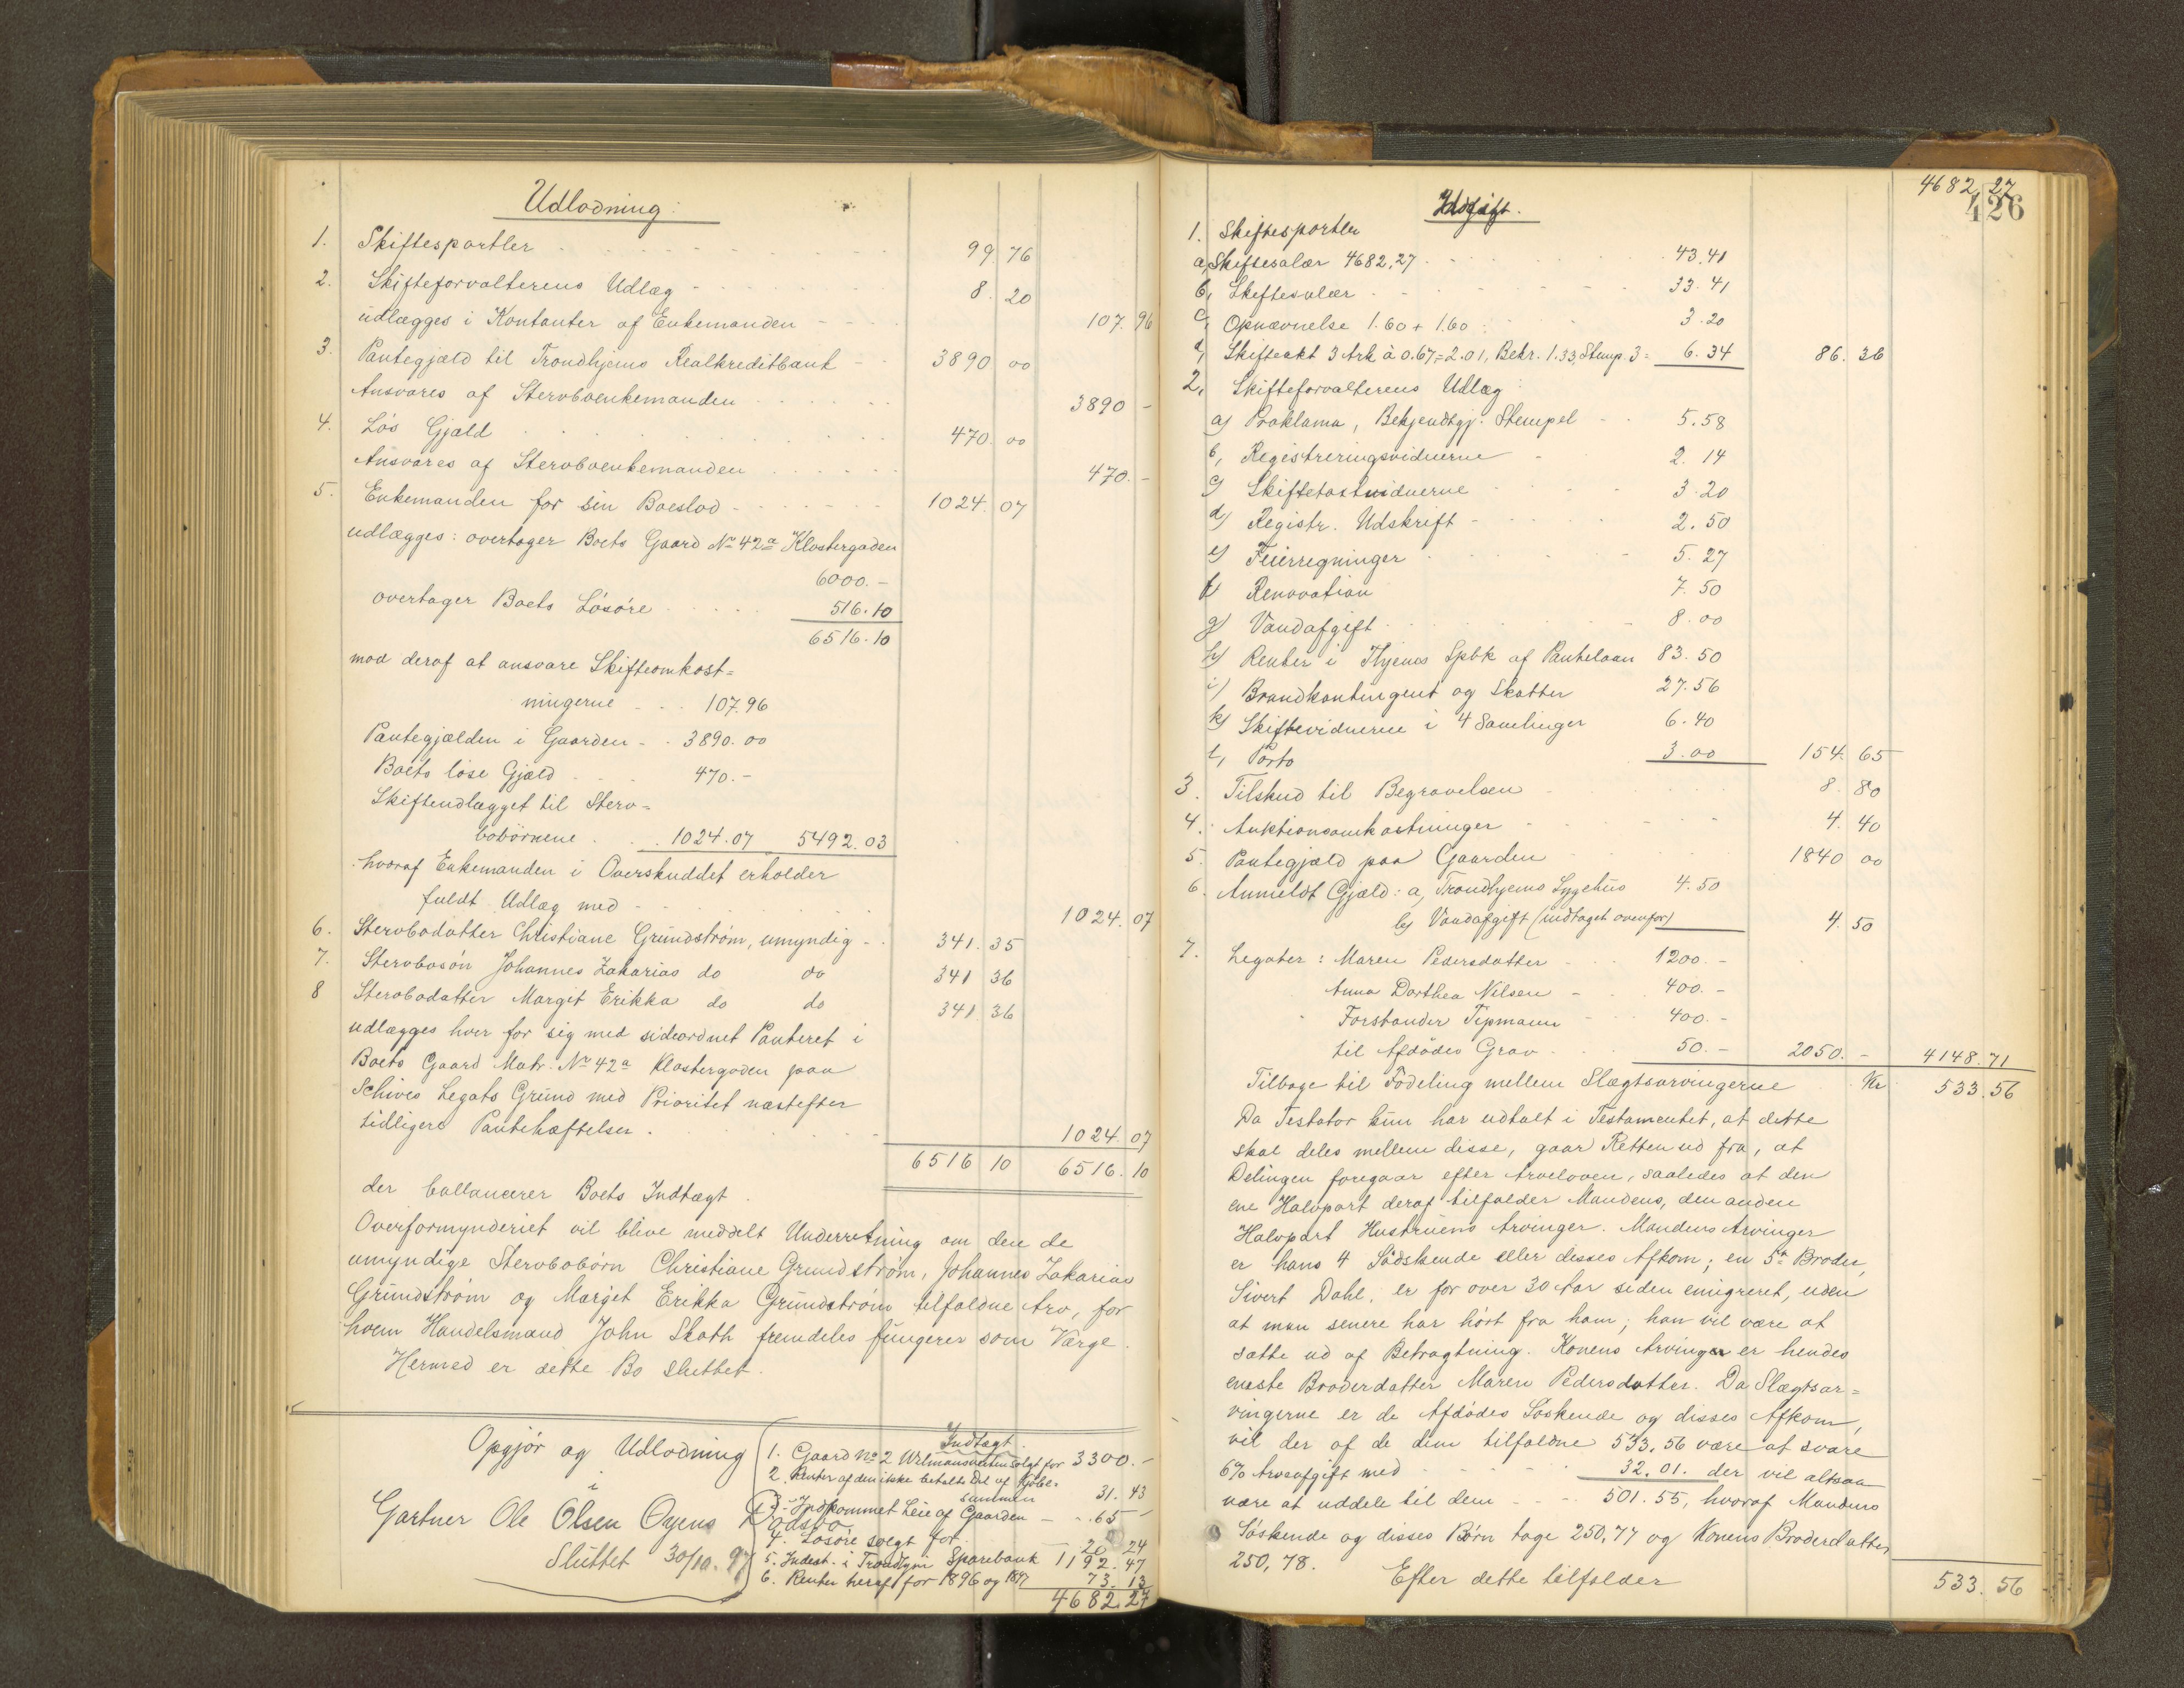 Udlodning:
1. Skiftesportler 99.76
2. Skifteforvalterens Udlæg 8.20
udlægges i Kontanter af Enkemanden 107.96
3. Pantegjæld til Trondhjems Realkreditbank 3890 00
Ansvares af Stervboenkemanden 3890 -
4. Løs Gjæld 470. 00
Ansvares af Stervboenkemanden 470. -
5. Enkemanden for sin Boeslod 1024. 07
udlægges: overtager Boets Gaard No 42a Klostergaden
6000.-
overtager Boets Løsøre 516.10
6516.10
mod deraf at ansvare Skifteomkost=
ningerne 107.96
Pantegjælden i Gaarden 3890.00
Boets løse Gjæld 470.-
Skifteudlægget til Sterv=
bobørnene 1024.07 5492.03
hvoraf Enkemanden i Overskuddet erholder
fuldt Udlæg med 1024.07
6. Stervbodatter Christiane Grundstrøm, umyndig 341.35
7. Stervbosøn Johannes Zakarias do do 341 36
8 Stervbodatter Margit Erikka do do 341 36
udlægges hver for sig med sideordnet Panteret i
Boets Gaard Matr. No 42a Klostergaden paa
Schives Legats Grund med Prioritet næstefter
tidligere Pantehæftelser. 1024.07
6516 10 6516.10
der ballancerer Boets Indtægt.
Overformynderiet vil blive meddelt Underretning om den de
umyndige Stervbobørn Christiane Grundstrøm, Johannes Zakarias
Grundstrøm og Margit Erikka Grundstrøm tilfaldne Arv, for
hvem Handelsmand John Skath fremdeles fungerer som Værge.
Hermed er dette Bo sluttet.
Opgjør og Udlodning
i
Gartner Ole Olsen Oyens Dødsbo
Sluttet 30/10. 97
Indtægt.
1. Gaard No 2 solgt for 3300.-
2. Renter af den ikke betalte Del af Kjøbe-
summen 31.43
3. Indkommet Leie af Gaarden 65 -
4. Løsøre solgt for 20 24
5. Indest. i Trondhjem Sparebank 1192.47
6. Renter heraf for 1896 og 1897 73.13
4682.27
4682.27
426
Udgift.
1. Skiftesportler
a, Skiftesalær 4682,27 43.41
b, Skiftesalær 33.41
c, Opnævnelse 1.60 + 1.60 3.20
d, Skifteakt 3 Ark à 0.67,= 2.01, Bekr. 1.33, Stemp. 3= 6.34 86.36
2, Skifteforvalterens Udlæg
a) Proklama, Bekjendtgj. Stempel 5.58
b, Registreringsvidnerne 2.14
c) 3.20
d) Registr. Udskrift 2.50
e) Feierregninger 5.27
f) Renovation 7.50
g) Vandafgift 8.00
h) Renter i Thjems Spbk af Pantelaan 83.50
i) Brandkontingent og Skatter 27.56
k) Skiftevidnerne i 4 Samlinger 6.40
l, Porto 3.00 154.65
3. Tilskud til Begravelsen 8.80
4. Auktionsomkostninger 4.40
5. Pantegjæld paa Gaarden 1840 00
6. Anmeldt Gjæld: a, Trondhjems Sygehus 4.50
b) Vandafgift (indtaget ovenfor) 4.50
7. Legater: Maren Pedersdatter 1200.-
Anna Dorthea Nilsen 400.-
Forstander Tepmann 400.-
til Afdødes Grav 50.- 2050.- 4148.71
Tilbage til Fødeling mellem Slægtsarvingerne Kr 533.56
Da Testator kun har udtalt i Testamentet, at dette
skal deles mellem disse, gaar Retten ud fra, at
Delingen foregaar efter Arveloven, saaledes at den
ene Halvpart deraf tilfalder Mandens, den anden
Halvpart Hustruens Arvinger. Mandens Arvinger
er hans 4 Sødskende eller disses Afkom; en 5te Broder,
Sivert Dahl, er for over 30 Aar siden emigreret, uden
at man senere har hørt fra ham; han vil være at
sætte ud af Betragtning. Konens Arvinger er hendes
eneste Broderdatter Maren Pedersdatter. Da Slægtsar=
vingerne er de Afdødes Søskende og disses Afkom,
vil der af de dem tilfaldne 533,56 være at svare
6% Arveafgift med 32.01. der vil altsaa
være at uddele til dem 501.55, hvoraf Mandens
Søskende og disses Børn tage 250,77 og Konens Broderdatter
250,78.
Efter dette tilfalder 533.56